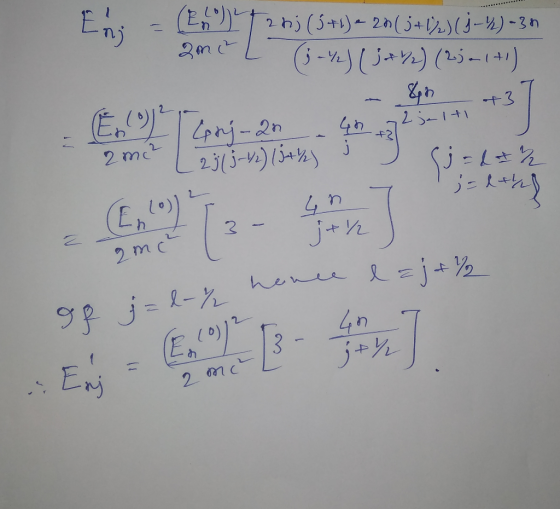 E'nj = (En⁽⁰⁾)²/2mc² [ 2nj(j+1) - 2n(j+1½)(j-½) - 3n / (j-½)(j+½)(2j-1+1)
- 84n/2j-1+1 + 3 ]
= (En⁽⁰⁾)²/2mc² [ 4nj-2n / 2j(j-½)(j+½) - 4n/j + 3 ]
{ j = l ± ½
j = l + ½ }
= (En⁽⁰⁾)²/2mc² [ 3 - 4n/j+½ ]
If j = l-½ hence l = j+½
∴ E'nj = (En⁽⁰⁾)²/2mc² [ 3 - 4n/j+½ ].